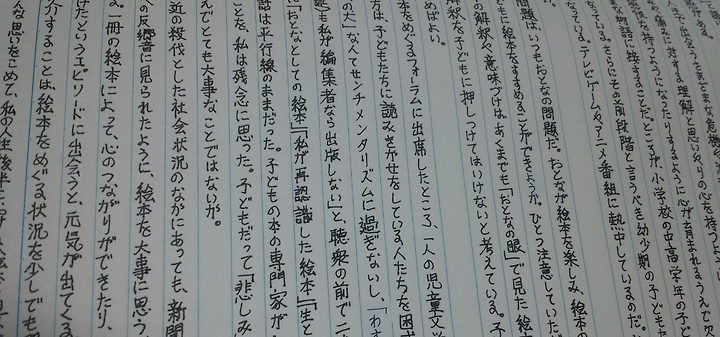 人生で出会うさまざまな危機を
な痛みに対する理解と思いやりの心を持つ
性を持つようになったりするように心が育まれるうえで欠
な物語に接することだ。ところが、小学校の中高学年の子ど
なっている。さらにその前段階と言うべき幼少期の子どもた
なっている。テレビゲームやアニメ番組に熱中しているのだ。
問題はいつもおとなの問題だ。おとなが絵本を楽しみ、絵本の
どもに絵本をすすめることができようか。ひとつ注意していただ
の解釈や意味づけは、あくまでも「おとなの眼」で見た絵本
解釈を子どもに押しつけてはいけないと考えている。子
めばよい。
本をめぐるフォーラムに出席したところ、一人の児童文学
方は、子どもたちに読みきかせをしている人たちを困
の犬」なんてセンチメンタリズムに過ぎないし、「わす
私が編集者なら出版しない」と、聴衆の前で二
「おとなとしての絵本」「私が再認識した絵本」「生と
話は平行線のままだった。子どもの本の専門家が
ことを、私は残念に思った。子どもだって「悲しみ
えでとても大事なことではないか。
近の殺伐とした社会状況のなかにあっても、新聞
の反響音に見られたように、絵本を大事に思う
る。一冊の絵本によって、心のつながりができたり、
けたというエピソードに出会うと、元気が出てくる
介することは、絵本をめぐる状況を少しでも
んな思いをこめて、私の人生後半に